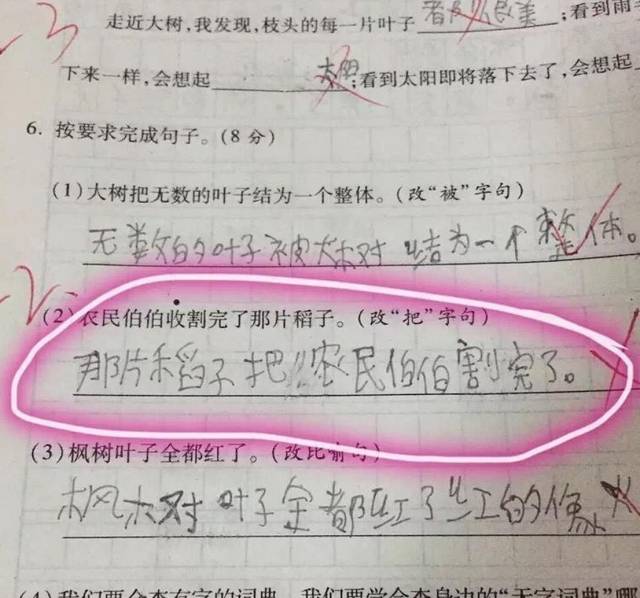 走近大树,我发现,枝头的每一片叶子 ;看到雨
下来一样,会想起 太阳 ;看到太阳即将落下去了,会想起
6. 按要求完成句子。(8 分)
(1)大树把无数的叶子结为一个整体。(改“被”字句)
无数的叶子被大树结为一个整体。
(2)农民伯伯收割完了那片稻子。(改“把”字句)
那片稻子把农民伯伯割完了。
(3)枫树叶子全都红了。(改比喻句)
枫树叶子全都红了红的像火
(4)我们要会查有字的词典,我们要学会查身边的“无字词典”哪